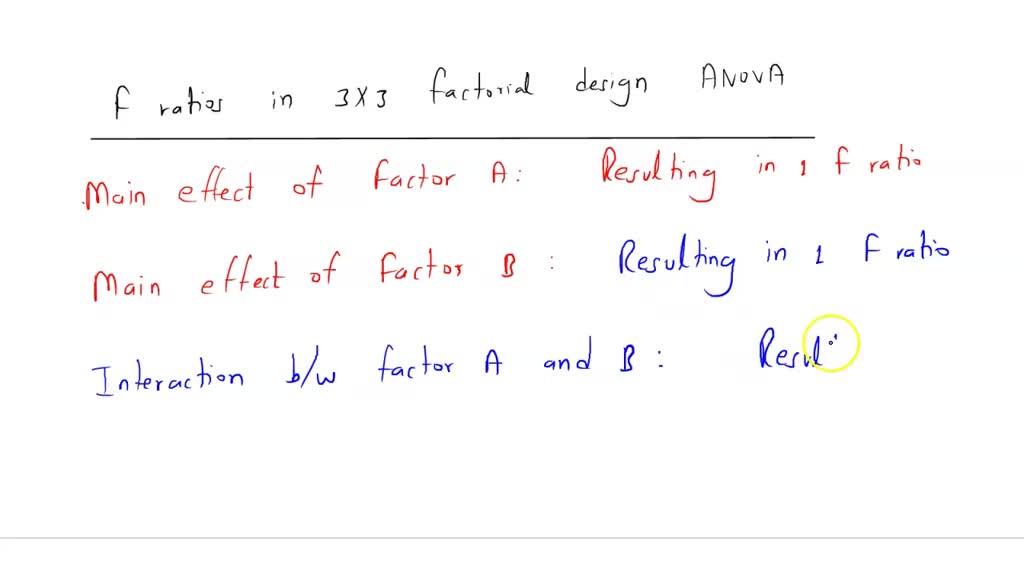 F ratios in 3X3 factorial design ANOVA
Main effect of Factor A: Resulting in 1 F ratio
Main effect of Factor B : Resulting in 1 F ratio
Interaction b/w factor A and B : Resul